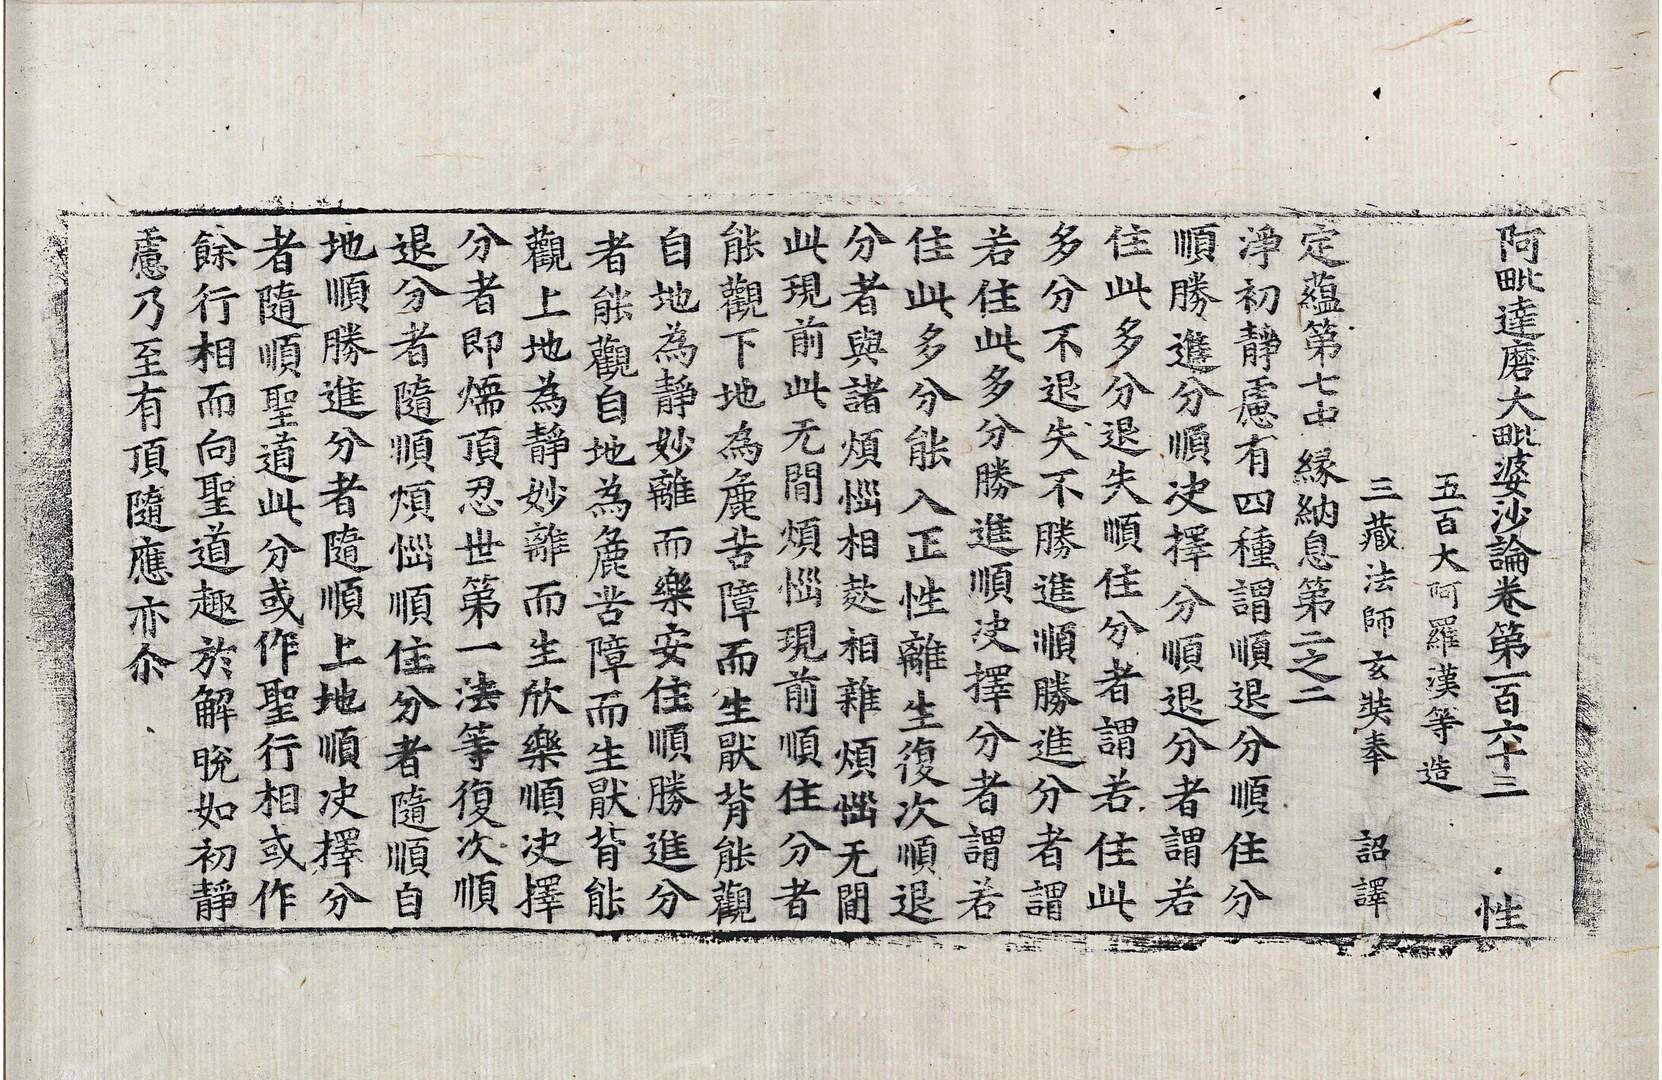 阿毗達磨大毗婆沙論卷第一百六十三 性
五百大阿羅漢等造
三藏法師玄奘奉 詔譯
定蘊第七中緣納息第二之二
淨初靜慮有四種謂順退分順住分
順勝進分順决擇分順退分者謂若
住此多分退失順住分者謂若住此
多分不退失不勝進順勝進分者謂
若住此多分勝進順决擇分者謂若
住此多分能入正性離生復次順退
分者與諸煩惱相㳫相雜煩惱无閒
此現前此无閒煩惱現前順住分者
能觀下地為麁苦障而生猒背能觀
自地為靜妙離而樂安住順勝進分
者能觀自地為麁苦障而生猒背能
觀上地為靜妙離而生欣樂順决擇
分者即煗頂忍世第一法等復次順
退分者隨順煩惱順住分者隨順自
地順勝進分者隨順上地順决擇分
者隨順聖道此分或作聖行相或作
餘行相而向聖道趣於解脫如初靜
慮乃至有頂隨應亦尒